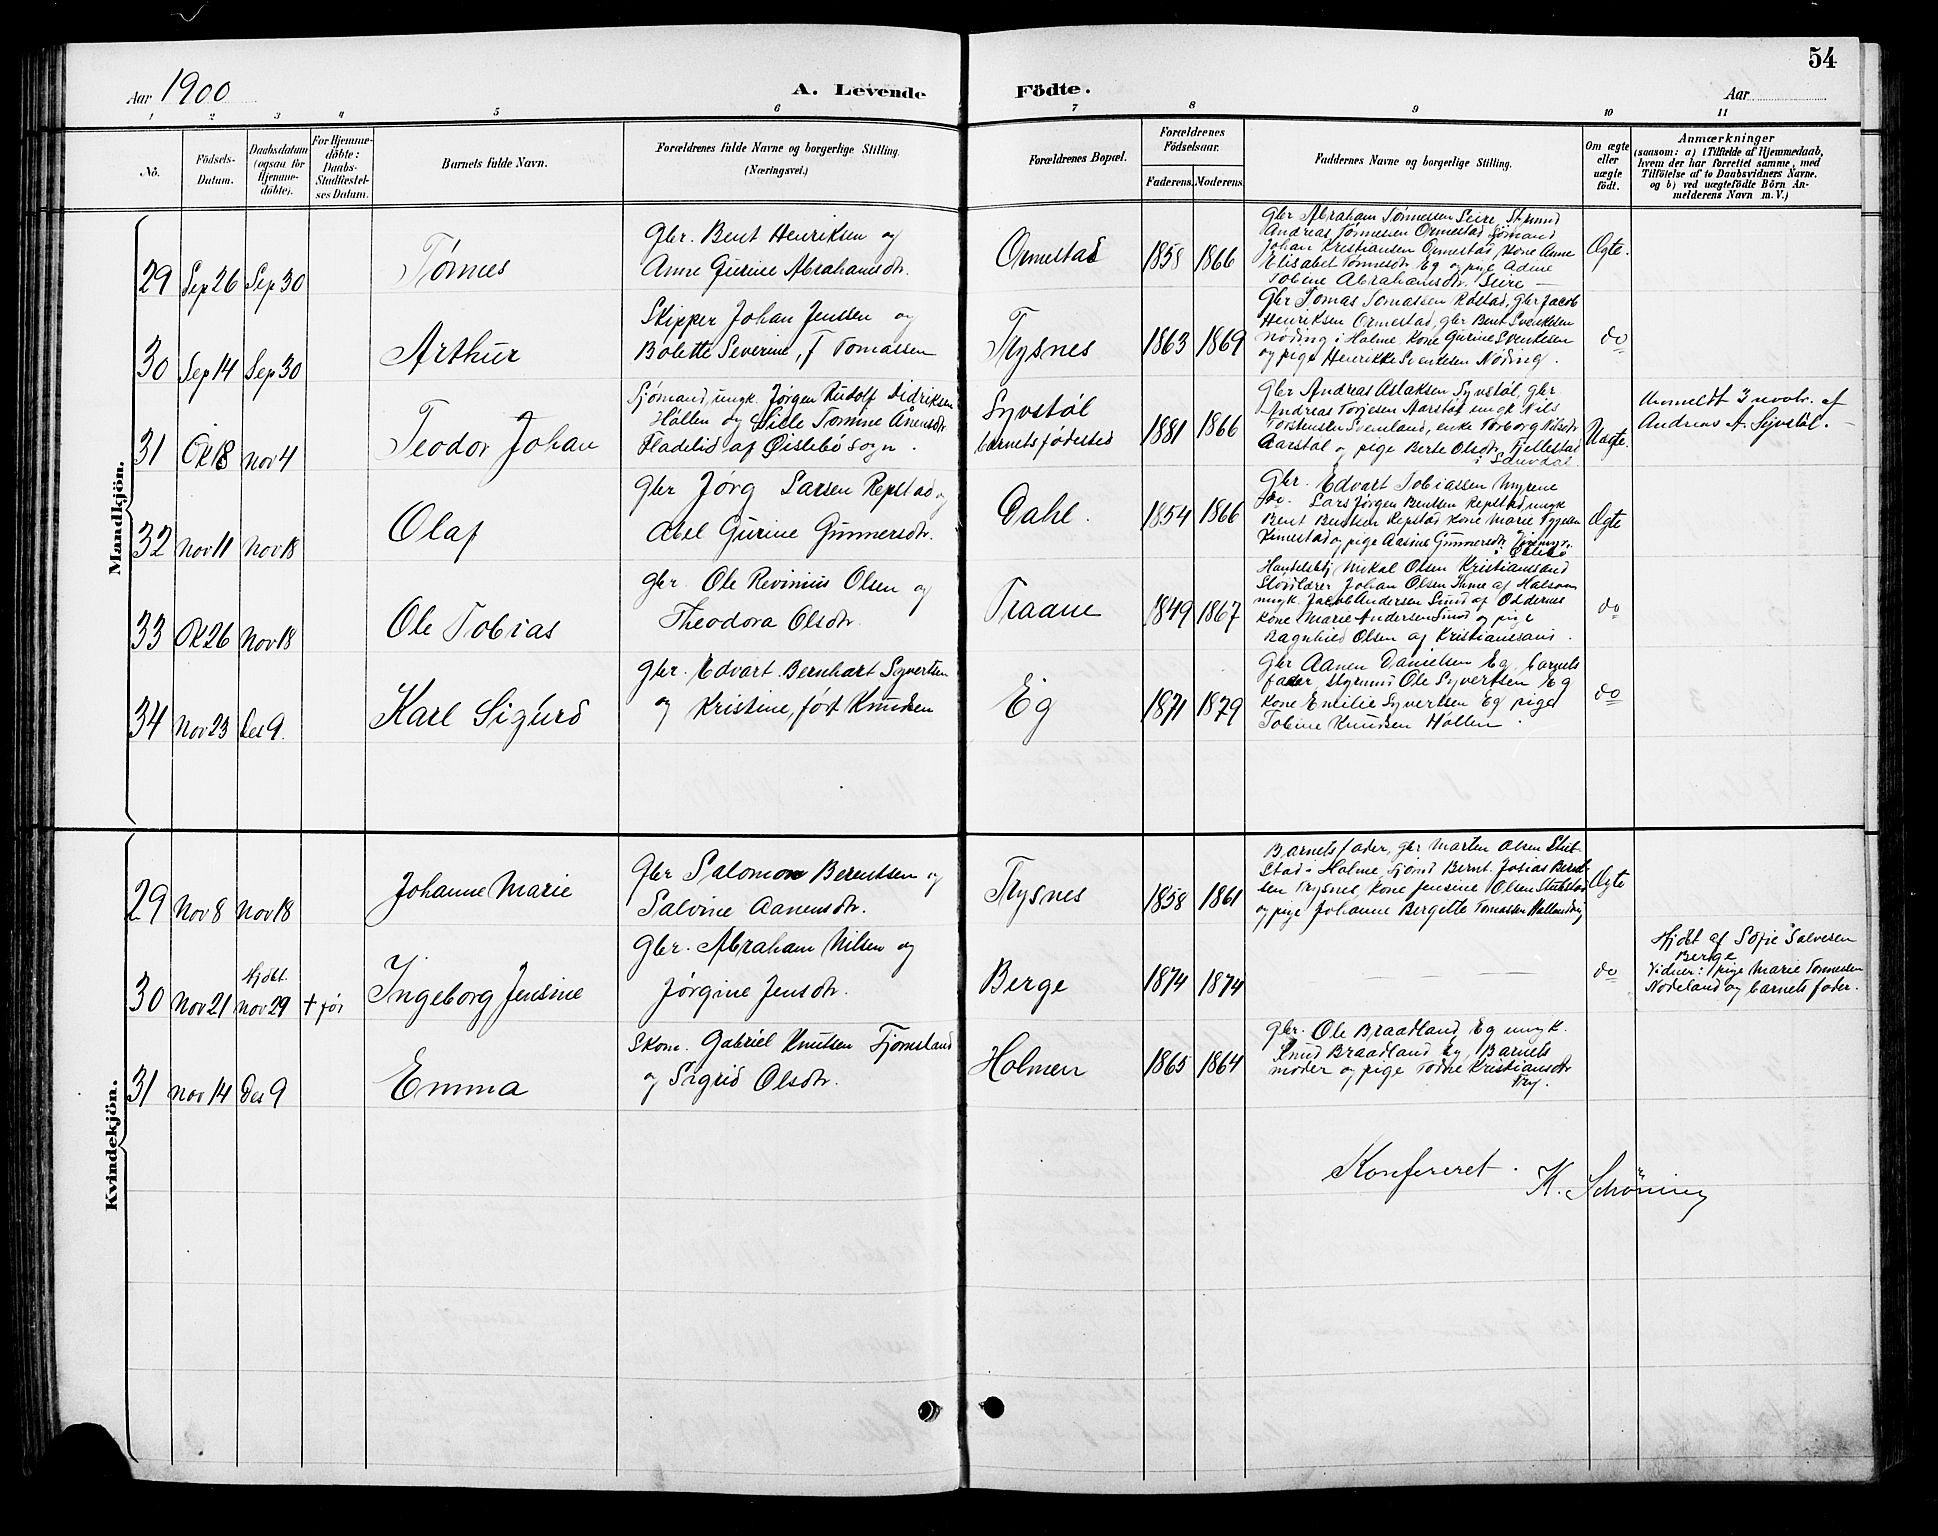 54
Aar 1900
A. Levende Födte.
Aar
1 2 3 4 5 6 7 8 9 10 11
No.
Födsels-Datum.
Daabsdatum (ogsaa for Hjemme-döbte).
For Hjemme-döbte: Daabs-Stadfæstel-ses Datum.
Barnets fulde Navn.
Forældrenes fulde Navne og borgerlige Stilling.
(Næringsvei.)
Forældrenes Bopæl.
Forældrenes Födselsaar.
Faderens.
Moderens.
Faddernes Navne og borgerlige Stilling.
Om ægte eller uægte födt.
Anmærkninger
(saasom: a) i Tilfælde af Hjemmedaab,
hvem der har forrettet samme, med
Tilföielse af to Daabsvidners Navne.
og b) ved uægtefödte Börn An-
melderens Navn m. V.)
Mandkjön.
29 Sep 26 Sep 30
Tønnes
Gbr. Bent Henriksen og
Anne Gurine Abrahamsdtr.
Ormestad
1858 1866
Gbr Abraham Tønnessen Seire, Strmnd
Andreas Tønnesen Ormestad Sømand
Johan Kristiansen Ormestad, kone Anne
Elisabet Tønnesdtr. Eg og pige Adine
Tobine Abrahamsdtr. Seire —
Ægte.
30 Sep 14 Sep 30
Arthur
Skipper Johan Jenssen og
Bolette Severine, f Tomassen
Trysnes
1863 1869
Gbr Tomas Tomassen Røstad, gbr Jacob
Henriksen Ormestad, gbr Bent Svenkesen
Nøding i Holme, kone Gurine Svenkesen
og pige Henrikke Svenkesen Nøding.
do
31 Okt 8 Nov 4
Teodor Johan
Sjømand, ungk. Jørgen Rudolf Didriksen
Høllen og Sille Tomine Ånensdtr.
Fladelid af Øislebø sogn.
Syvstøl
barnets fødested
1881 1866
Gbr Andreas Aslaksen Syvstøl, gbr
Andreas Torjesen Aarstøl ungk Nils
Torstensen Svenland, enke Torborg Nilsdtr
Aarstøl og pige Berte Olsdtr, Fjellestad
i Søndal
Uægte.
Anmeldt 3 novbr. af
Andreas A. Syvstøl. —
32 Nov 11 Nov 18
Olaf
Gbr Jørg Larsen Repstad og
Abel Gurine Gunnersdtr.
Dahl.
1854 1866
Gbr. Edvart Tobiassen Myrene
do. Lars Jørgen Bentsen Repstad, ungk
Bent Bentsen Repstad kone Marie
Kimestad og pige Aasine Gunnersdtr
i Øislebø
Ægte
33 Ok 26 Nov 18
Ole Tobias
Gbr. Ole Revinius Olsen og
Theodora Olsdtr.
Traane
1849 1867
Handelsbtj Mikal Olsen Kristianssand
Johan Olsen Ihme af Halsaa
ungk. Jacob Andersen Sund af Oddernes
kone Marie Andersen Sund og pige
Ragnhild Olsen af Kristianssand.
do
34 Nov 23 Des 9.
Karl Sigurd
Gbr. Edvart Bernhart Syvertsen
og Kristine, født Knudsen
Eg
1871 1879
Gbr Aanen Danielsen Eg, barnets
fader styrmnd Ole Syvertsen Eg
kone Emilie Syvertsen Eg pige
Tobine Knudsen Høllen.
do
Kvindekjön.
29 Nov 8 Nov 18
Johanne Marie
Gbr Salomon Berentsen og
Salvine Aanensdtr.
Trysnes
1858 1861
Barnets fader, gbr Marten Olsen Stub-
stad i Holme, Sjømd Bernt Josias Bernt-
sen Trysnes, kone Jensine Olsen Stubstad
og pige Johanne Bergette Tomassen Hallandvig
Ægte
30 Nov 21
Hjdbt.
Nov 29
† før
Ingeborg Jensine
Gbr. Abraham Nilsen og
Jørgine Jensdtr.
Berge
1874 1874
— — —
do
Hjdbt af Sofie Salvesen
Berge
Vidner: pige Marie Tønnesen
Nodeland og barnets fader.
31 Nov 14 Des 9
Emma
Skom. Gabriel Knutsen Fjomsland
og Sigrid Olsdtr.
Holmen
1865 1864
Gbr. Ole Braadland, Eg ungk.
Knud Braadland Eg, Barnets
moder og pige Todne Kristiansdtr
Try.
Konfereret.
K. Schöning